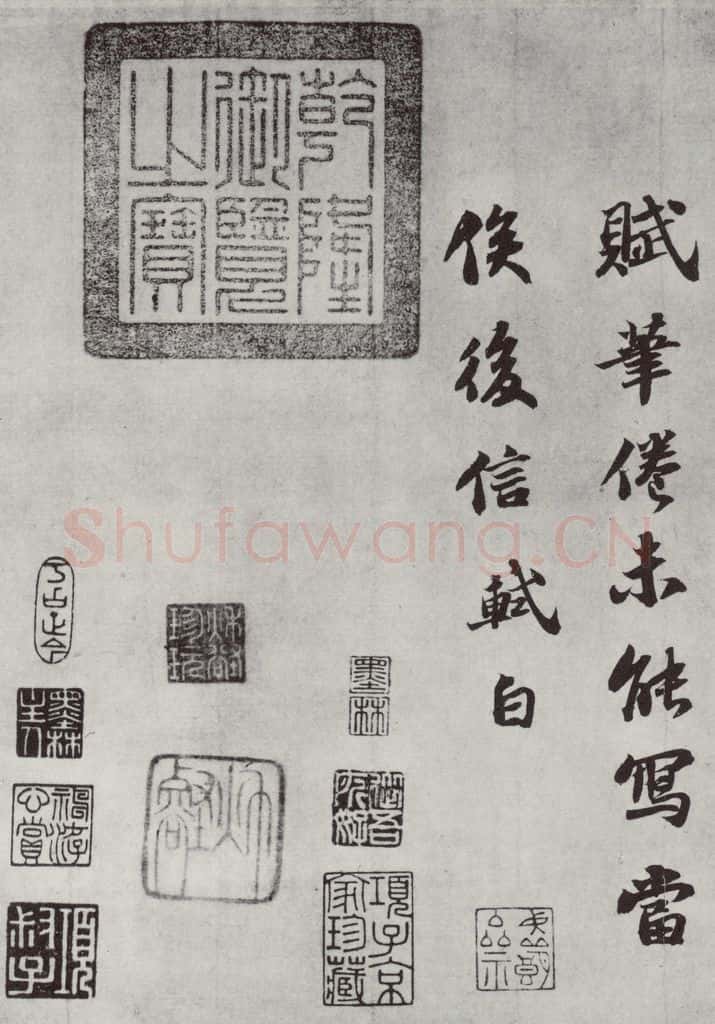 賦筆倦未能寫當
俟後信軾白
乾隆御覽之寶
墨林
項子京家珍藏
墨林主人
神游心賞
項叔子
Shufawang.CN